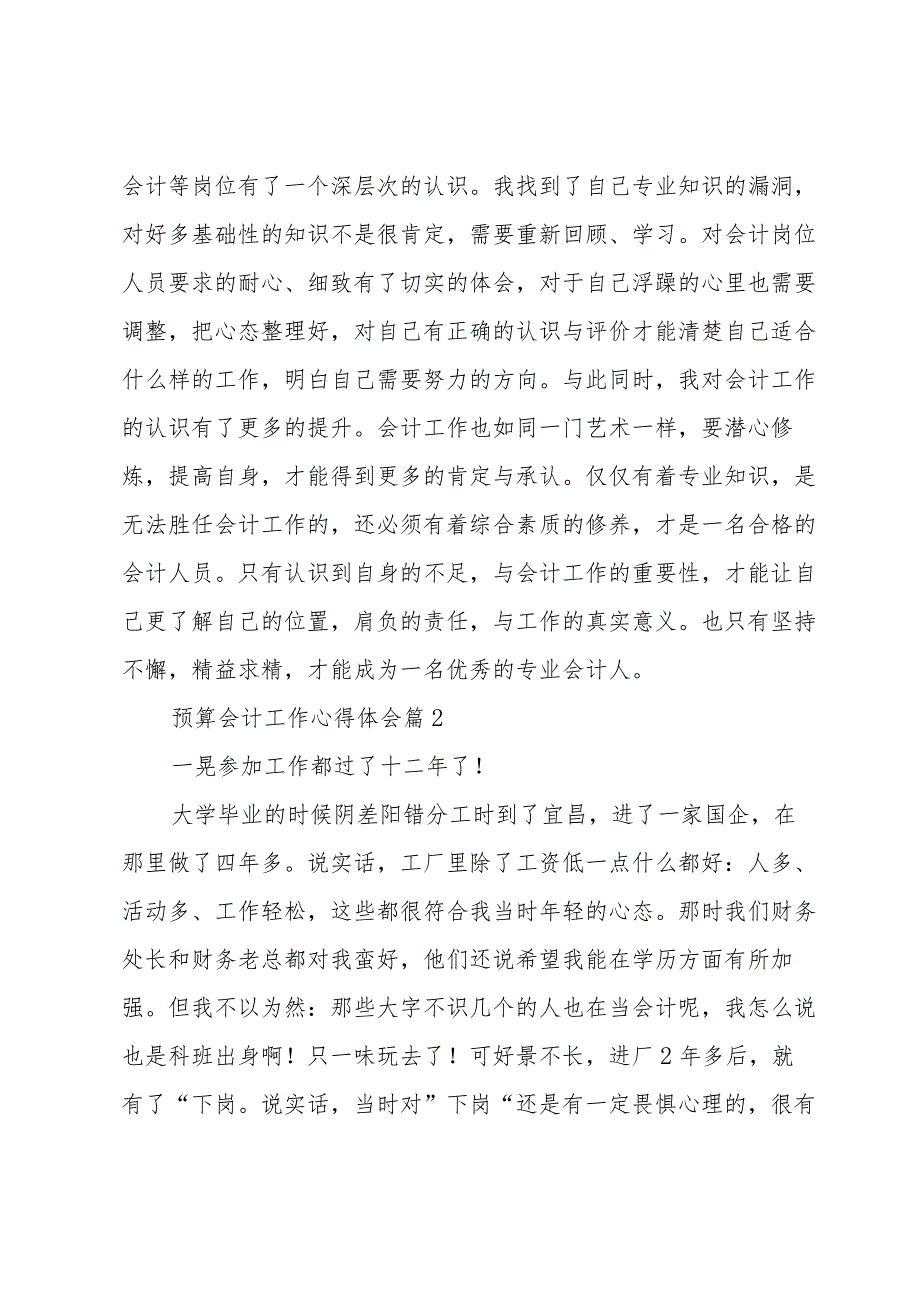 会计等岗位有了一个深层次的认识。我找到了自己专业知识的漏洞，
对好多基础性的知识不是很肯定，需要重新回顾、学习。对会计岗位
人员要求的耐心、细致有了切实的体会，对于自己浮躁的心里也需要
调整，把心态整理好，对自己有正确的认识与评价才能清楚自己适合
什么样的工作，明白自己需要努力的方向。与此同时，我对会计工作
的认识有了更多的提升。会计工作也如同一门艺术一样，要潜心修
炼，提高自身，才能得到更多的肯定与承认。仅仅有着专业知识，是
无法胜任会计工作的，还必须有着综合素质的修养，才是一名合格的
会计人员。只有认识到自身的不足，与会计工作的重要性，才能让自
己更了解自己的位置，肩负的责任，与工作的真实意义。也只有坚持
不懈，精益求精，才能成为一名优秀的专业会计人。
预算会计工作心得体会篇2
一晃参加工作都过了十二年了！
大学毕业的时候阴差阳错分工时到了宜昌，进了一家国企，在
那里做了四年多。说实话，工厂里除了工资低一点什么都好：人多、
活动多、工作轻松，这些都很符合我当时年轻的心态。那时我们财务
处长和财务老总都对我蛮好，他们还说希望我能在学历方面有所加
强。但我不以为然：那些大字不识几个的人也在当会计呢，我怎么说
也是科班出身啊！只一味玩去了！可好景不长，进厂2年多后，就
有了“下岗。说实话，当时对”下岗“还是有一定畏惧心理的，很有